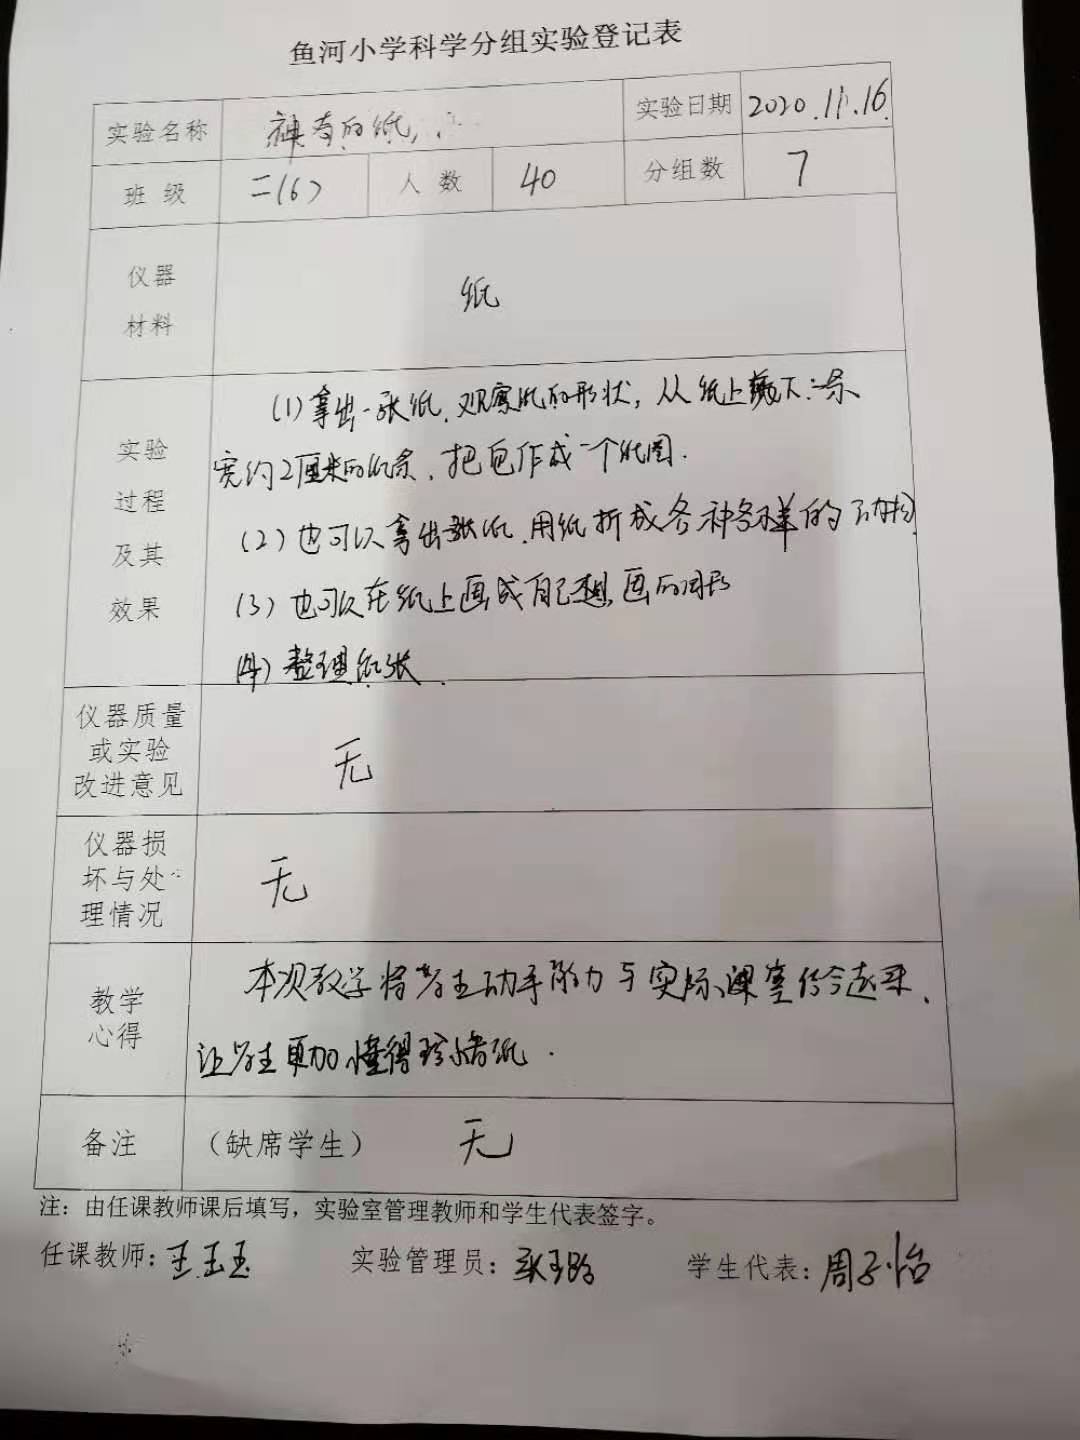 鱼河小学科学分组实验登记表
实验名称 神奇的纸 实验日期 2020.11.16.
班级 二(6) 人数 40 分组数 7
仪器
材料
纸
实验
过程
及其
效果
(1)拿出一张纸,观察纸的形状,从纸上裁下一条
宽约2厘米的纸条,把它作成一个纸圈.
(2)也可以拿出张纸,用纸折成各种各样的动物
(3)也可以在纸上画成自己想画的图形
(4)整理纸张.
仪器质量
或实验
改进意见
无
仪器损
坏与处
理情况
无
教学
心得
本次教学将学生动手能力与实际课堂结合起来,
让学生更加懂得珍惜纸.
备注 (缺席学生) 无
注:由任课教师课后填写,实验室管理教师和学生代表签字。
任课教师:王玉玉 实验管理员: 学生代表:周子怡